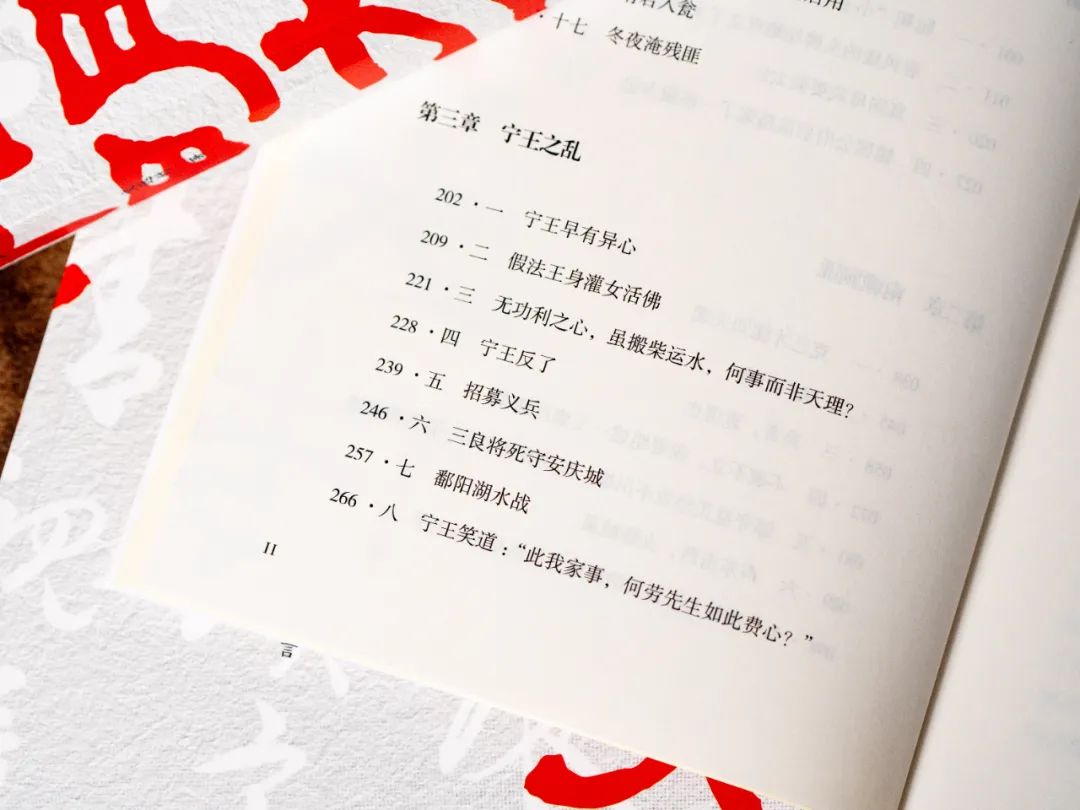 君入瓮
·十七 冬夜淹残匪
第三章 宁王之乱
202 ·一 宁王早有异心
209 ·二 假法王身灌女活佛
221 ·三 无功利之心，虽搬柴运水，何事而非天理？
228 ·四 宁王反了
239 ·五 招募义兵
246 ·六 三良将死守安庆城
257 ·七 鄱阳湖水战
266 ·八 宁王笑道：“此我家事，何劳先生如此费心？”
II
言